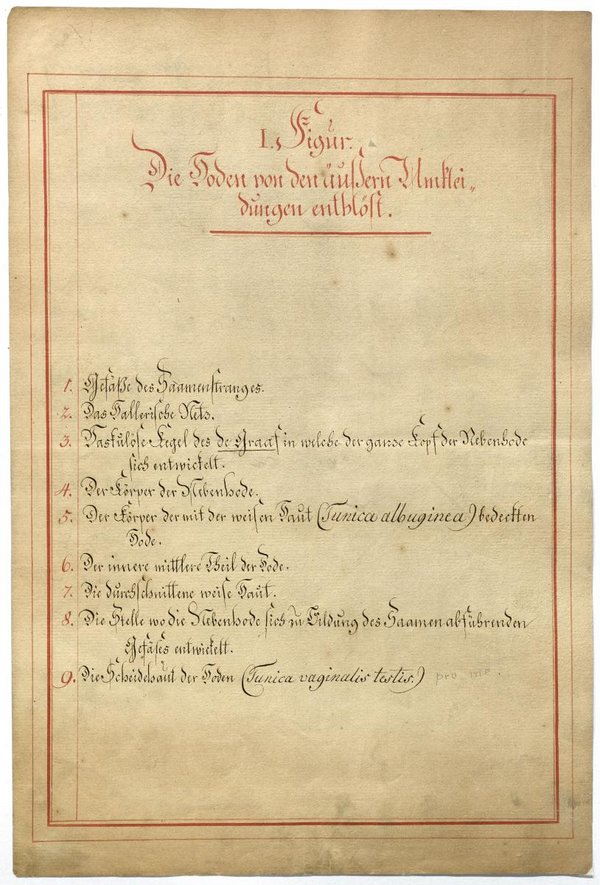 I. Figur.
Die Hoden von den äußern Umklei„
dungen entblöst.
1. Gefäße des Saamenstranges.
2. Das Hallerische Netz.
3. Vaskulöse Kegel des de Graaf in welche der ganze Kopf der Nebenhode
sich entwickelt.
4. Der Körper der Nebenhode.
5. Der Körper der mit der weisen Haut (Tunica albuginea) bedeckten
Hode.
6. Der innere mittlere Theil der Hode.
7. Die durchschnittene weise Haut.
8. Die Stelle wo die Nebenhode sich zu Bildung des Saamen abführenden
Gefäses entwickelt.
9. Die Scheidehaut der Hoden (Tunica vaginalis testis.) pro me.